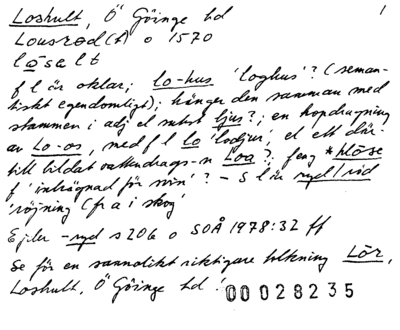 Loshult, Ö Göinge hd 1
Lousrød(t) o 1570
låsalt
f l är oklar; lo-hus 'loghus'? (seman-
tiskt egendomligt); hänger den samman med
stammen i adj el subst ljus?; en hopdragning
av Lo-os, med f l lo 'lodjur' el ett där-
till bildat vattendrags-n Loa?; feng *hlōse
f 'inhägnad för svin'? - S l är ryd/röd
'röjning (fr a i skog)'
Ejder -ryd s 206 o SOÅ 1978:32 ff
Se för en sannolikt riktigare tolkning Lör,
Loshult, Ö Göinge hd!
00028235